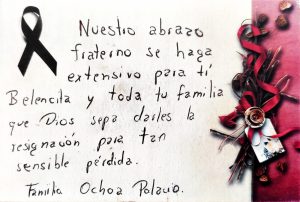 Nuestro abrazo
fraterno se haga
extensivo para tí
Belencita y toda tu familia
que Dios sepa darles la
resignación para tan
sensible pérdida.
Familia Ochoa Palacio.